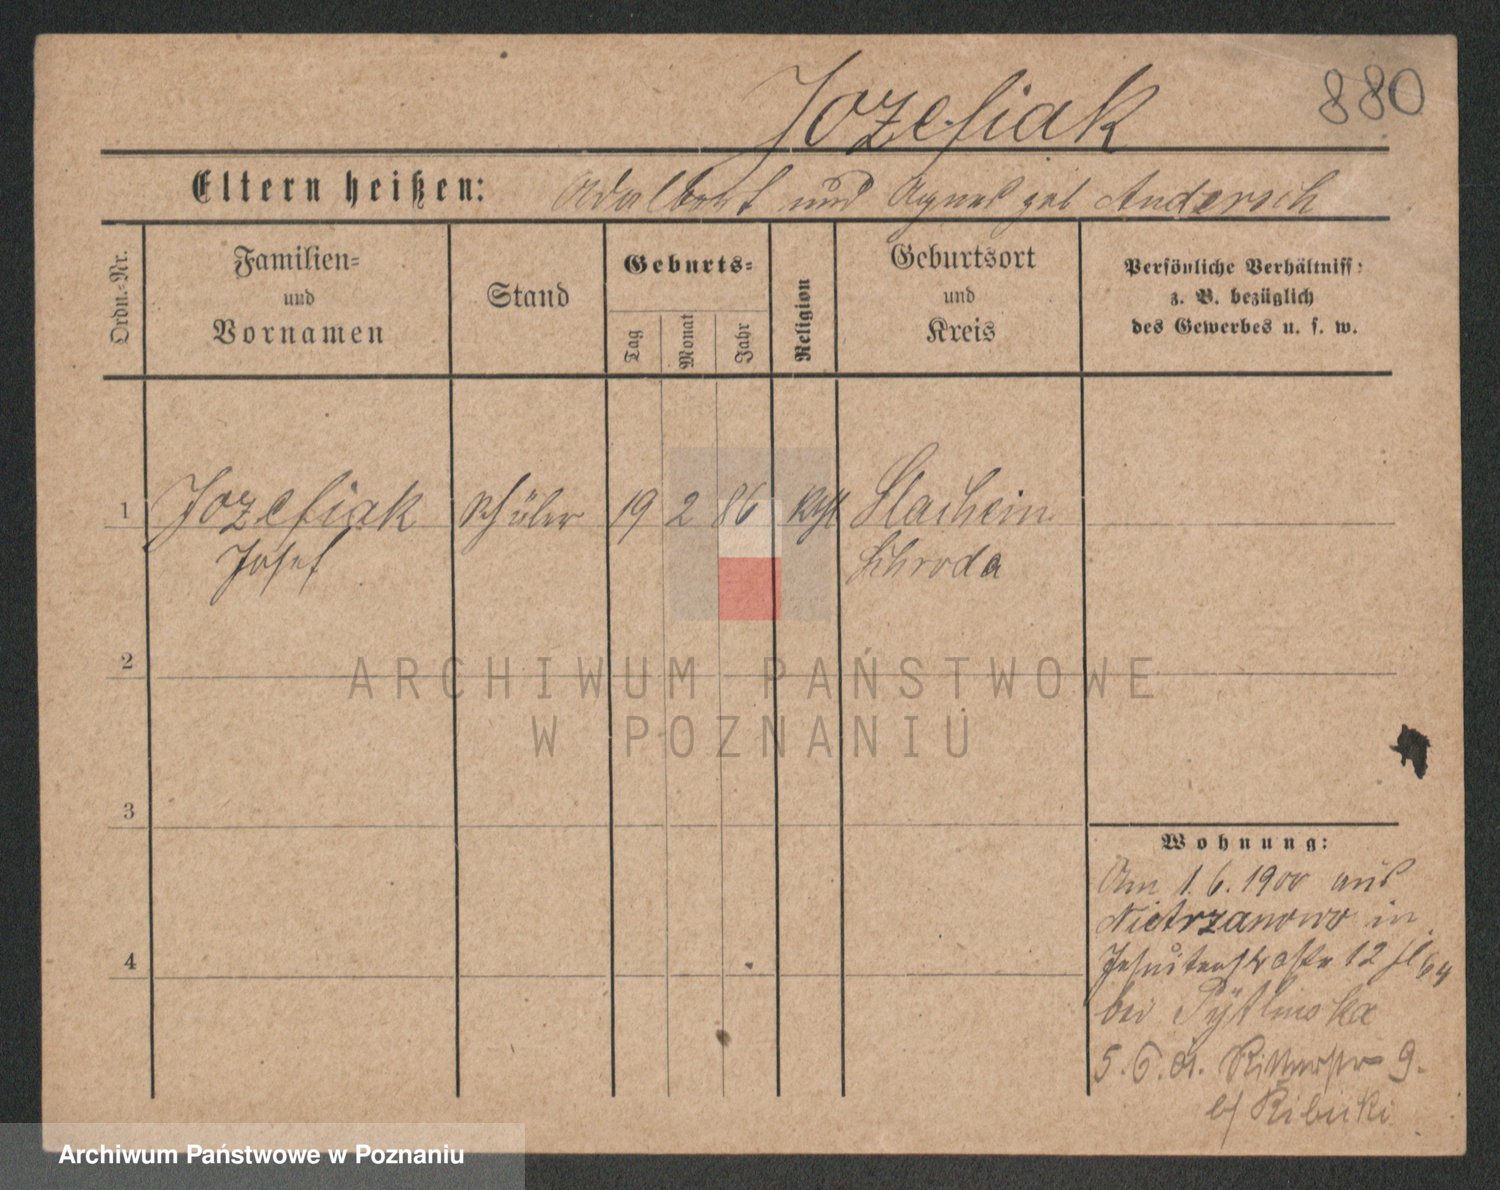 Jozefiak 880
Eltern heißen: Adalbert und Agnes geb Andersch
Ordn.-Nr.
Familien-
und
Vornamen
Stand
Geburts-
Tag
Monat
Jahr
Religion
Geburtsort
und
Kreis
Persönliche Verhältniss:
z. B. bezüglich
des Gewerbes u. s. w.
1 Jozefiak Schüler 19 2 86 kath Slachcin
Josef Schroda
2
ARCHIWUM PAŃSTWOWE
W POZNANIU
3
Wohnung:
Am 1.6.1900 aus
Nietrzanowo in
4
Jesuitenstraße 12
bei Pytlinska
5.6.01. Ritterstr 9.
b/ Ribicki
Archiwum Państwowe w Poznaniu